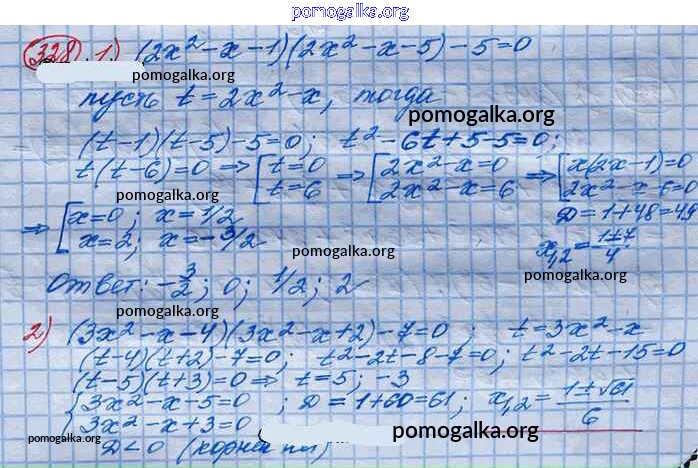 pomogalka.org
328 1) (2x²-x-1)(2x²-x-5)-5=0
pomogalka.org
пусть t=2x²-x, тогда
pomogalka.org
(t-1)(t-5)-5=0; t²-6t+5-5=0;
t(t-6)=0 ⇒ [t=0 t=6 ⇒ [2x²-x=0 2x²-x=6 ⇒ [x(2x-1)=0 2x²-x-6=0
pomogalka.org
D=1+48=49
⇒ [x=0; x=1/2 x=2; x=-3/2
x₁,₂=1±7/4
pomogalka.org
pomogalka.org
Ответ: -3/2; 0; 1/2; 2
2) (3x²-x-4)(3x²-x+2)-7=0; t=3x²-x
(t-4)(t+2)-7=0; t²-2t-8-7=0; t²-2t-15=0
(t-5)(t+3)=0 ⇒ t=5; -3
{3x²-x-5=0; D=1+60=61; x₁,₂=1±√61/6
3x²-x+3=0
pomogalka.org
pomogalka.org
D<0 (корней нет)